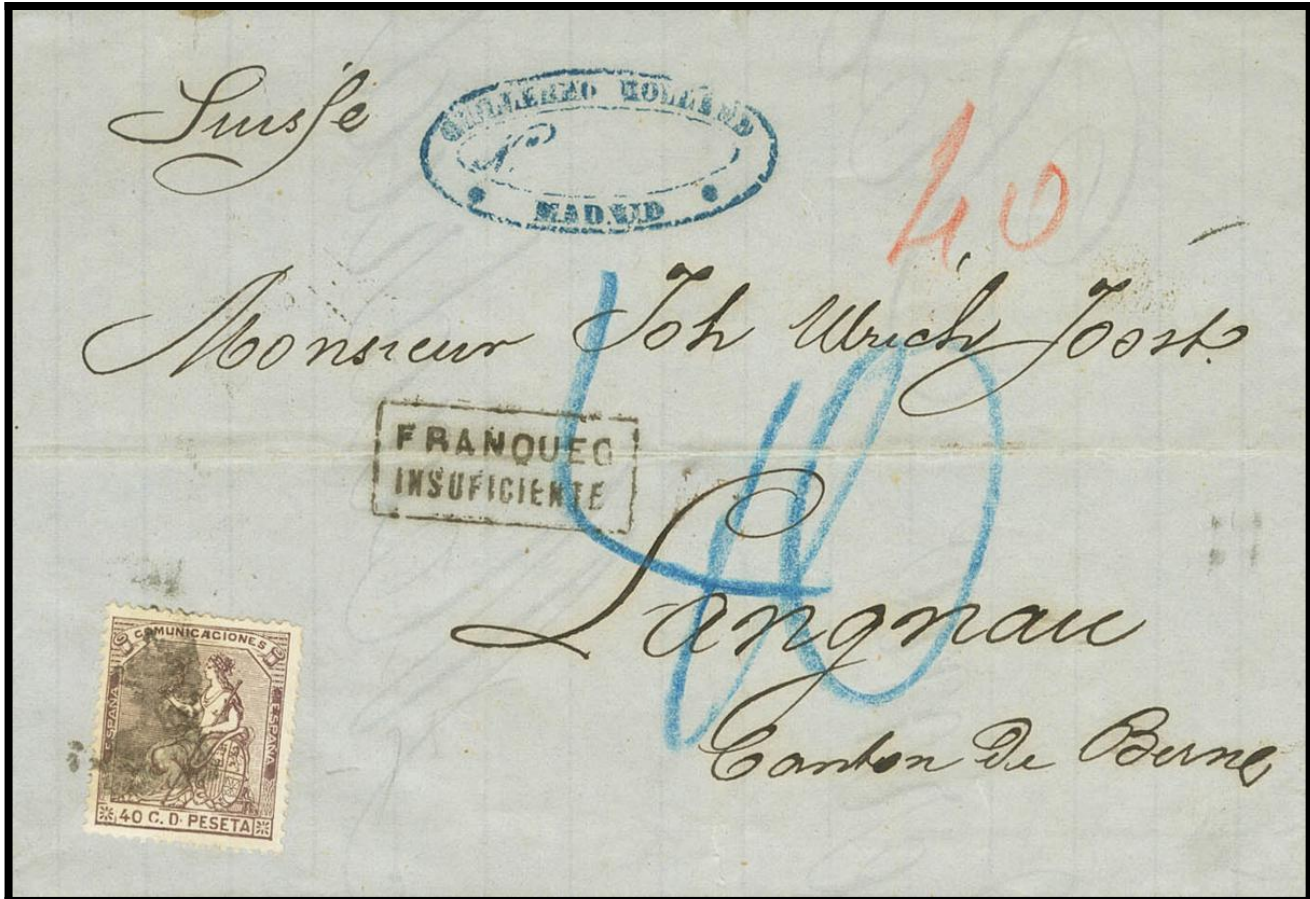 Suisse
GUILLERMO
MADRID
40
Monsieur Joh Ulrich Joost
FRANQUEO
INSUFICIENTE
40
Langnau
Canton De Berne
COMUNICACIONES
ESPAÑA
ESPAÑA
40 C. D. PESETA